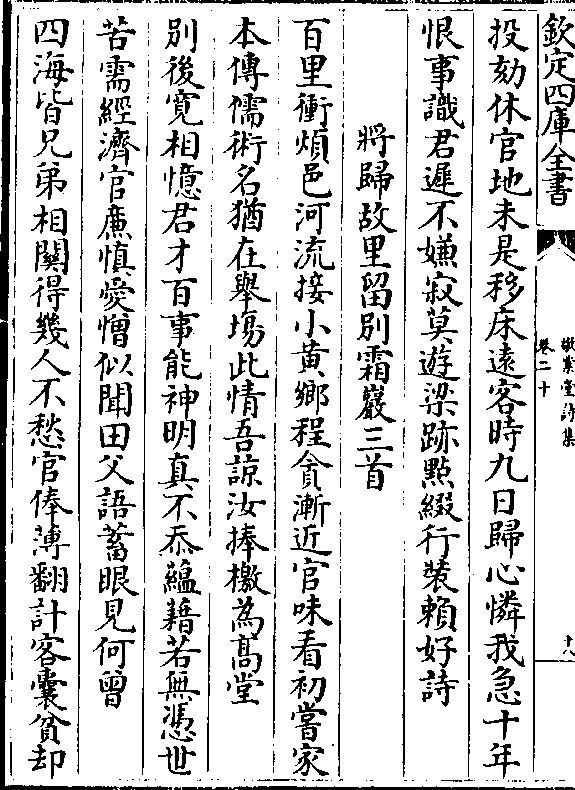 欽定四庫全書
敬業堂詩集
卷二十
十八
投劾休官地未是移床遠客時九日歸心憐我急十年
恨事識君遲不嫌寂莫遊梁跡點綴行裝賴好詩
將歸故里留別霜巖三首
百里衝煩邑河流接小黃鄉程貪漸近官味看初嘗家
本傳儒術名猶在舉場此情吾諒汝捧檄為髙堂
别後寛相憶君才百事能神明真不忝藴藉若無憑世
苦需經濟官應慎愛憎似聞田父語蓄眼見何曾
四海皆兄弟相關得幾人不愁官俸薄翻計客囊貧却